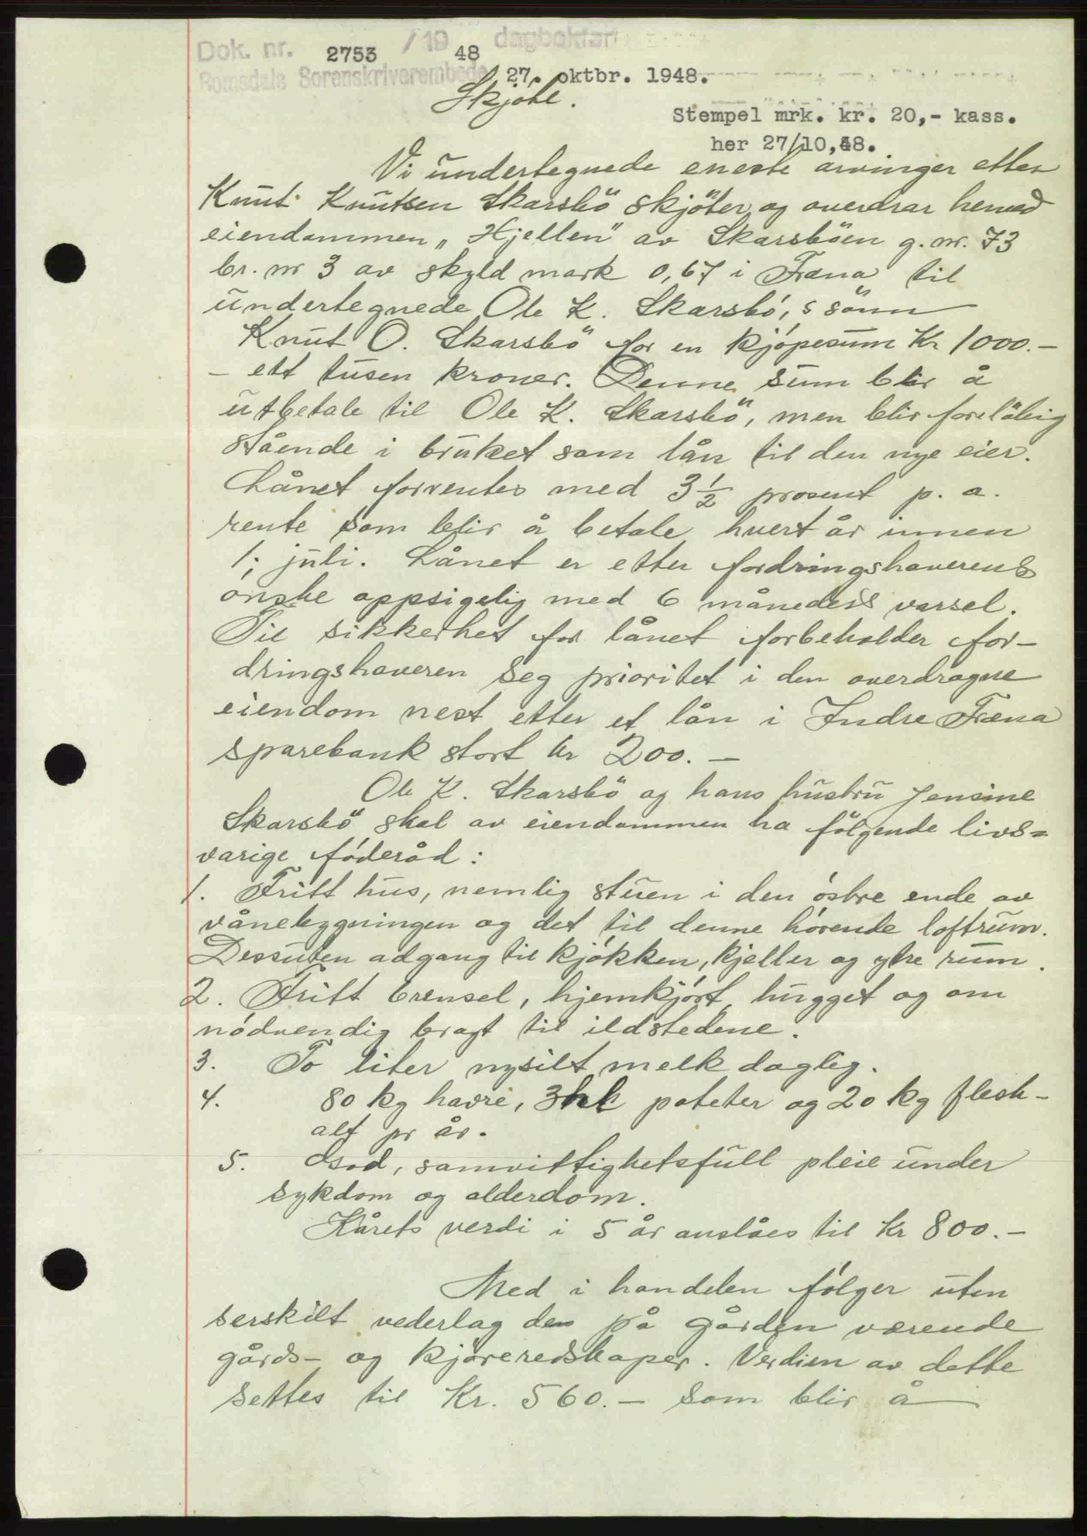 Dok. nr. 2753 / 19 48 dagbokført
Romsdals Sorenskriverembede 27. oktbr. 1948.
Skjöte.
Stempel mrk. kr. 20,- kass.
her 27/10,48.
Vi undertegnede eneste arvinger etter
Knut Knutsen Skarsbö skjöter og overdrar herved
eiendommen „Hjellen" av Skarsböen g. nr. 73
br. nr 3 av skyld mark 0,67 i Fræna til
undertegnede Ole K. Skarsbö,s sönn
Knut O. Skarsbö for en kjöpesum Kr 1000.-
- ett tusen kroner. Denne sum blir å
utbetale til Ole K. Skarsbö, men blir forelöbig
stående i bruket som lån til den nye eier.
Lånet forrentes med 3 1/2 prosent p. a.
rente som blir å betale hvert år innen
1; juli. Lånet er etter fordringshaverens
önske oppsigelig med 6 måneders varsel.
Til sikkerhet for lånet forbeholder for-
dringshaveren seg prioritet i den overdragne
eiendom nest etter et lån i Indre Fræna
sparebank stort kr 200.-
Ole K. Skarsbö og hans hustru Jensine
Skarsbö skal av eiendommen ha fölgende livs=
varige föderåd:
1. Fritt hus, nemlig stuen i den östre ende av
vånebygningen og det til denne hörende loftrum.
Dessuten adgang til kjökken, kjeller og ytre rum.
2. Fritt brensel, hjemkjört, hugget og om
nödvendig bragt til ildstedene.
3. To liter nysilt melk daglig.
4. 80 kg havre, 3 hl poteter og 20 kg flesk -
alt pr år.
5. God, samvittighetsfull pleie under
sykdom og alderdom.
Kårets verdi i 5 år anslåes til kr 800.-
Med i handelen fölger uten
serskilt vederlag den på gården værende
gårds- og kjöreredskaper. Verdien av dette
settes til Kr. 560.- som blir å